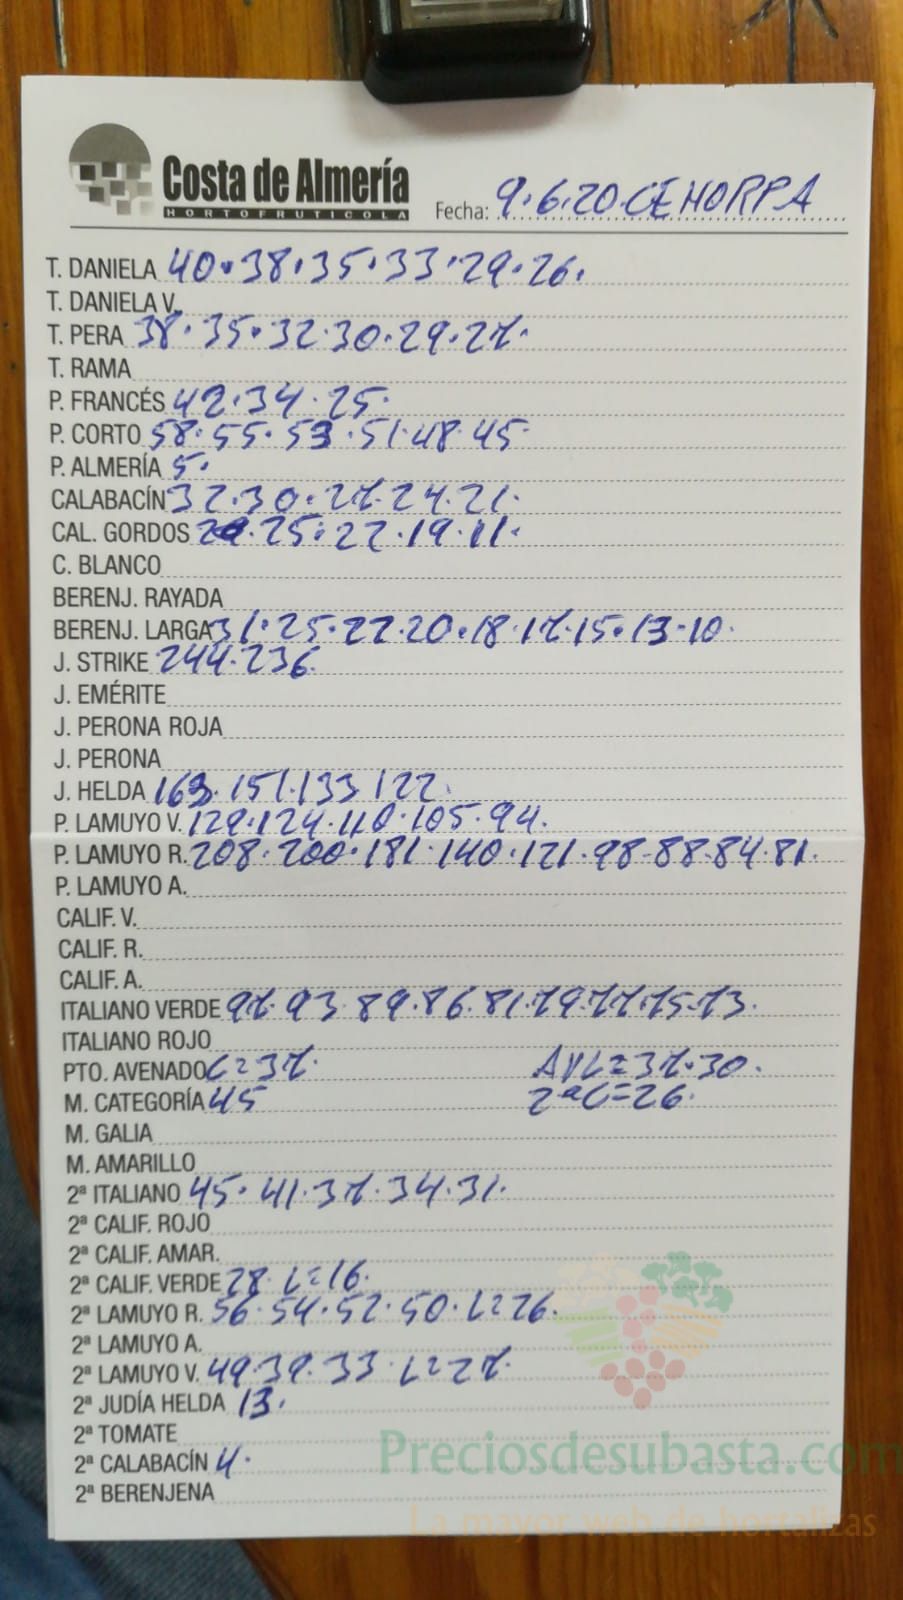 Costa de Almería
HORTOFRUTICOLA
Fecha: 9.6.20.CEHORPA
T. DANIELA 40.38.35.33.29.26.
T. DANIELA V.
T. PERA 38.35.32.30.29.27.
T. RAMA
P. FRANCÉS 42.34.25.
P. CORTO 58.55.53.51.48.45
P. ALMERÍA 5.
CALABACÍN 32.30.27.24.21.
CAL. GORDOS 25.22.19.11.
C. BLANCO
BERENJ. RAYADA
BERENJ. LARGA 31.25.22.20.18.17.15.13.10.
J. STRIKE 244.236.
J. EMÉRITE
J. PERONA ROJA
J. PERONA
J. HELDA 163.151.133 122.
P. LAMUYO V. 129.124.110.105.94.
P. LAMUYO R. 208.200.181.140.121.98.88.84.81.
P. LAMUYO A.
CALIF. V.
CALIF. R.
CALIF. A.
ITALIANO VERDE 97.93.89.86.81.79.77.75.73.
ITALIANO ROJO
PTO. AVENADO L=37. AVL=37.30.
M. CATEGORÍA 45 2ªC=26.
M. GALIA
M. AMARILLO
2ª ITALIANO 45.41.37.34.31.
2ª CALIF. ROJO
2ª CALIF. AMAR.
2ª CALIF. VERDE 28. L=16.
2ª LAMUYO R. 56.54.52.50.L=26.
2ª LAMUYO A.
2ª LAMUYO V. 49.39.33.L=27.
2ª JUDÍA HELDA 13.
2ª TOMATE
2ª CALABACÍN 4.
2ª BERENJENA
Preciosdesubasta.com
La mayor web de hortalizas